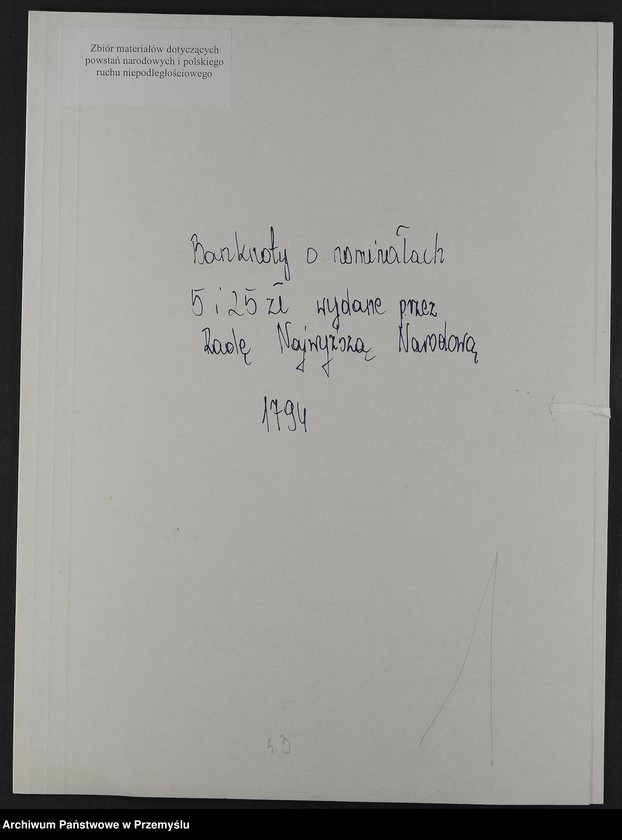 Zbiór materiałów dotyczących
powstań narodowych i polskiego
ruchu niepodległościowego
Banknoty o nominałach
5 i 25 zł wydane przez
Radę Najwyższą Narodową
1794
1
Archiwum Państwowe w Przemyślu